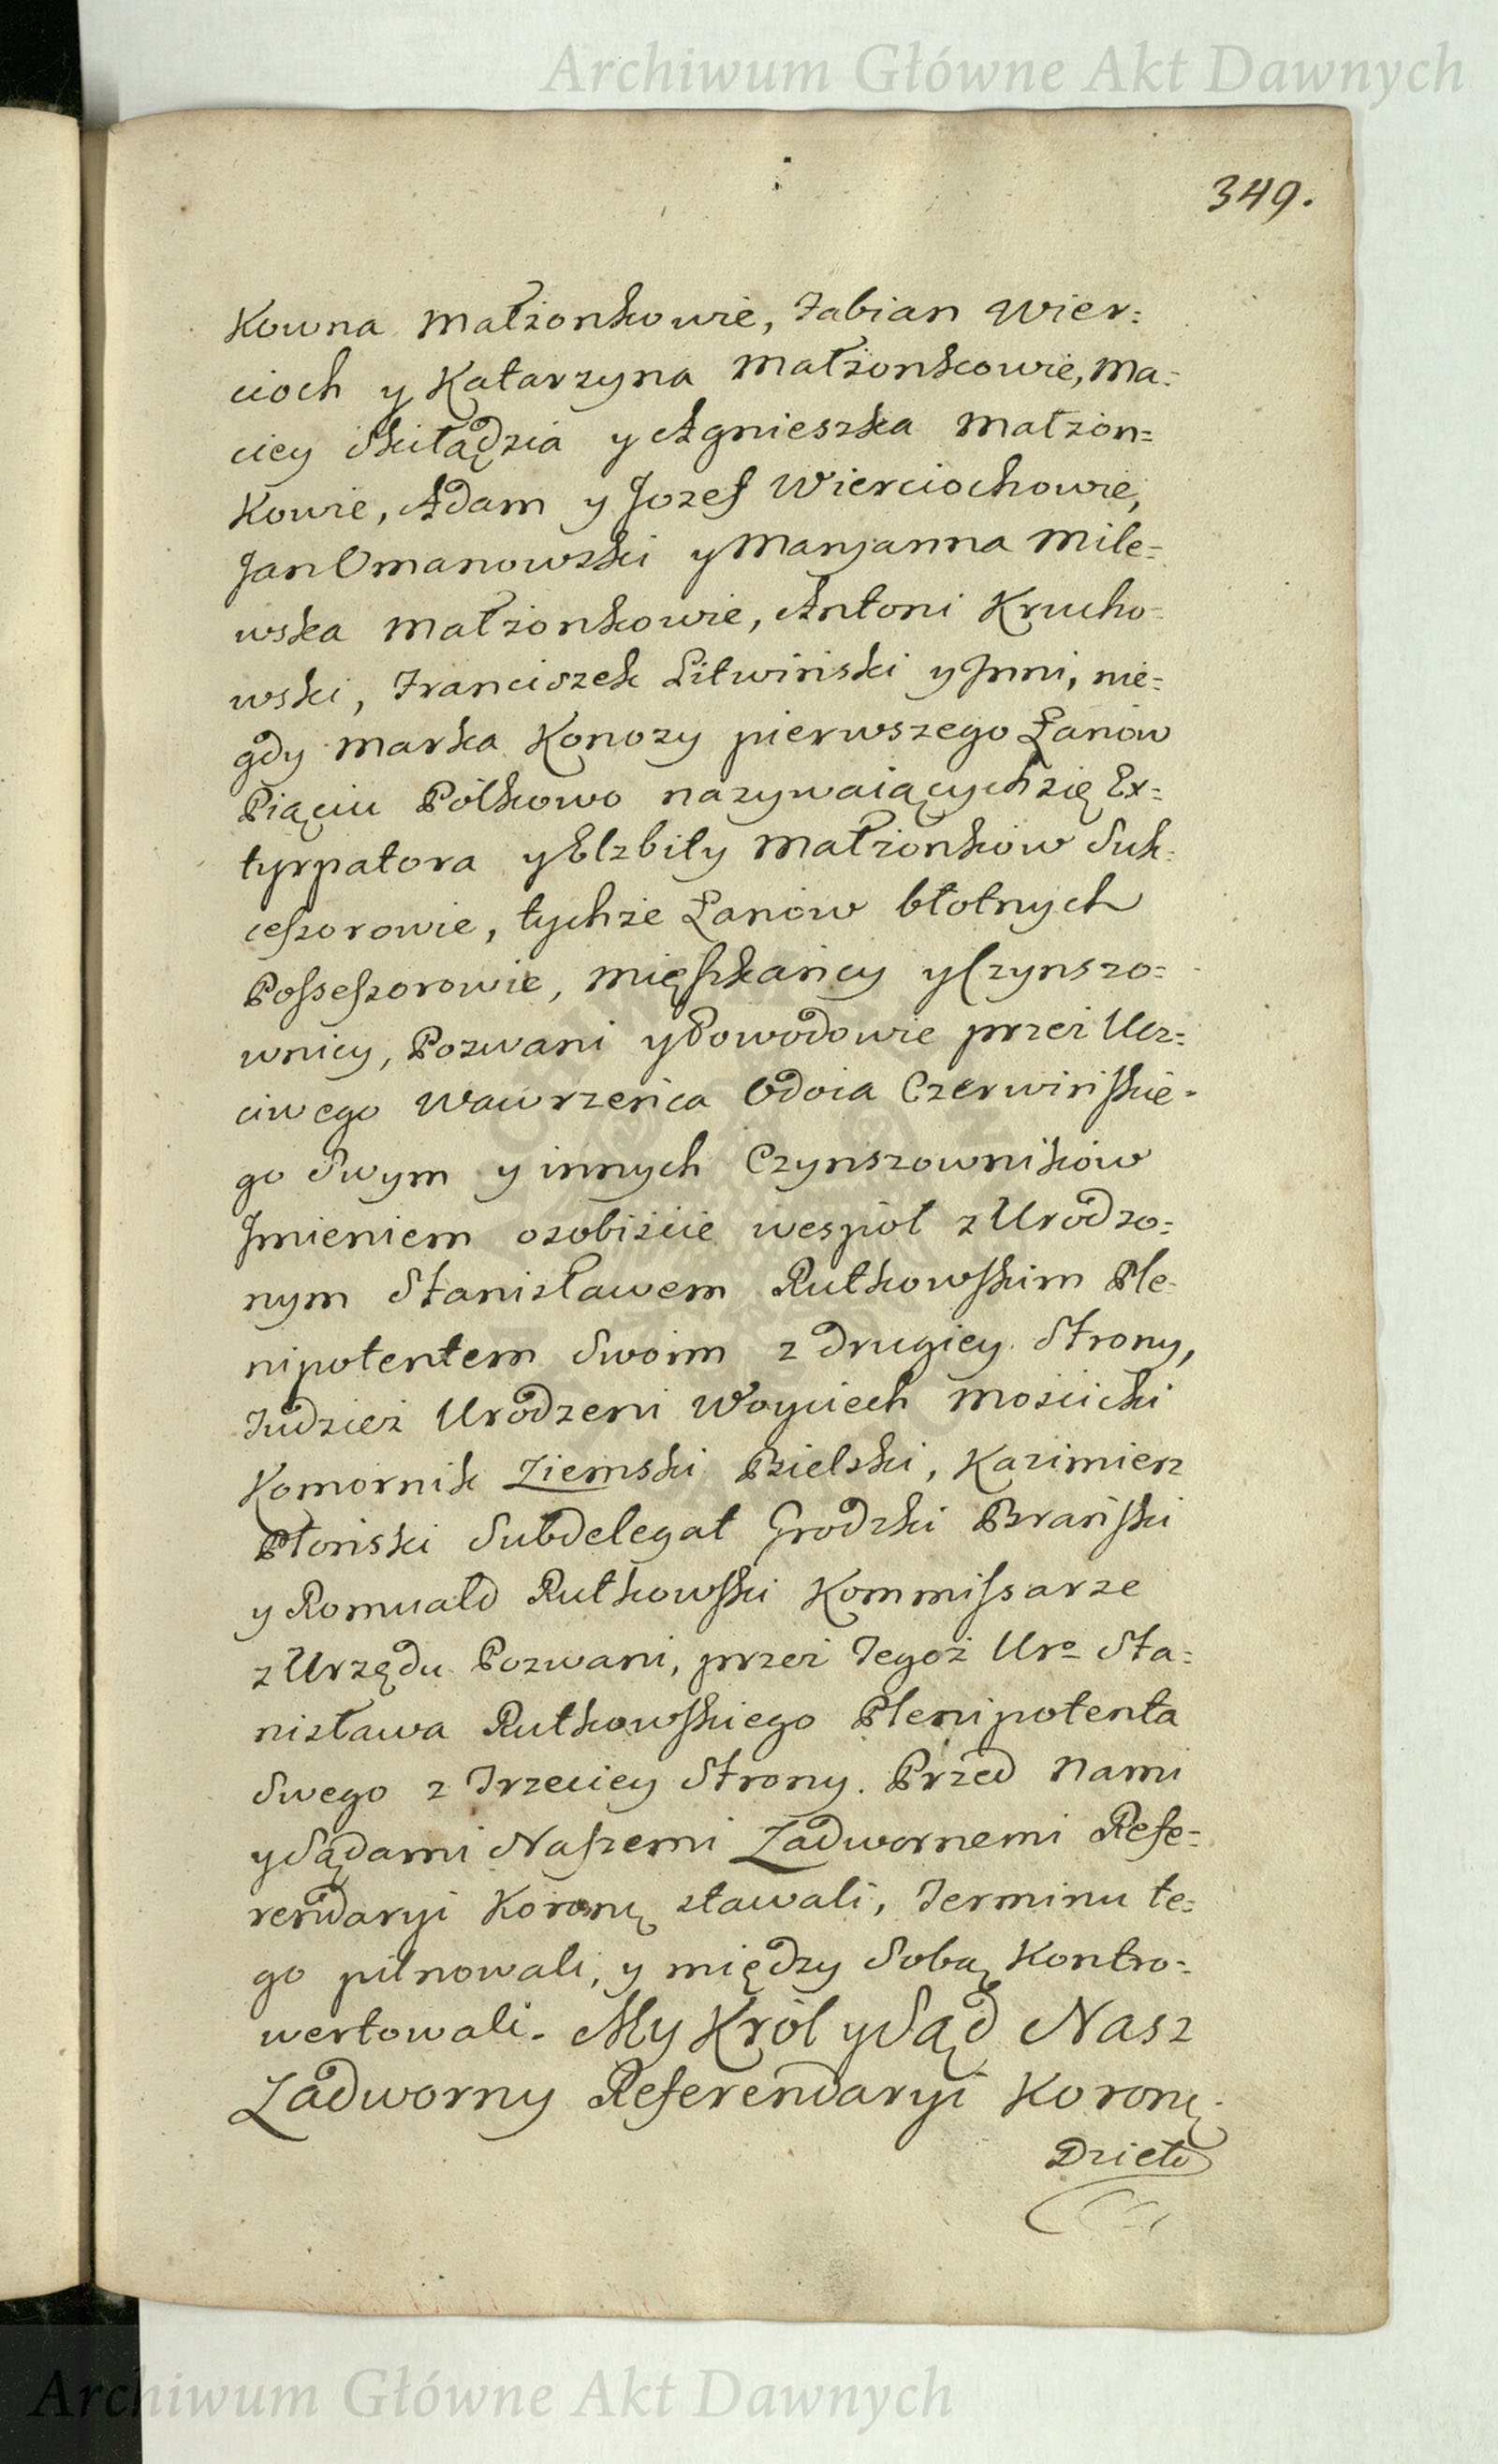 Archiwum Główne Akt Dawnych
349.
Kowna Małżonkowie, Fabian Wier=
cioch y Katarzyna Małżonkowie, Ma=
ciey Skiłądzia y Agnieszka Małżon=
Kowie, Adam y Jozef Wierciochowie,
Jan Omanowski y Maryanna Mile=
wska Małżonkowie, Antoni Krucho=
wski, Franciszek Litwiński y Jnni, nie=
gdy Marka Konozy pierwszego Łanow
Piąciu Pólkowo nazywaiącychsię Ex=
tyrpatora y Elzbiły Małżonkow Suk=
ceszorowie, tychże Łanów błotnych
Posseszorowie, Mięszkańcy y Czynszo=
wnicy, Pozwani y Powodowie przez Ucz=
ciwego Wawrzeńca Odoia Czerwińskie=
go Swym y innych Czynszowników
Jmieniem osobiście wespół z Urodzo=
nym Stanisławem Rutkowskim Ple=
nipotentem Swoim z Drugiey Strony,
Tudzież Urodzeni Woyciech Mościcki
Komornik Ziemski Bielski, Kazimierz
Płoński Subdelegat Grodzki Brański
y Romuald Rutkowski Kommissarze
z Urzędu Pozwani, przez Tegoż Uro Sta=
nisława Rutkowskiego Plenipotenta
Swego z Trzeciey Strony. Przed Nami
y Sądami Naszemi Zadwornemi Refe=
rendaryi Koronę stawali, Terminu te=
go pilnowali, y między Sobą Kontro=
wertowali. My Król y Sąd Nasz
Zadworny Referendaryi Koronę
Dzieło
Archiwum Główne Akt Dawnych